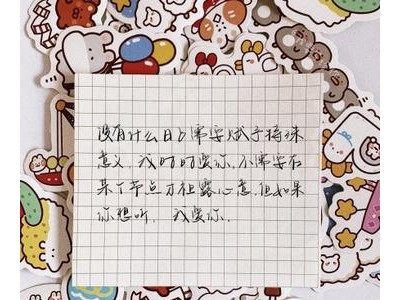 没有什么日子需要赋予特殊
意义，我时时爱你，不需要在
某个节点才袒露心意，但如果
你想听，我爱你.